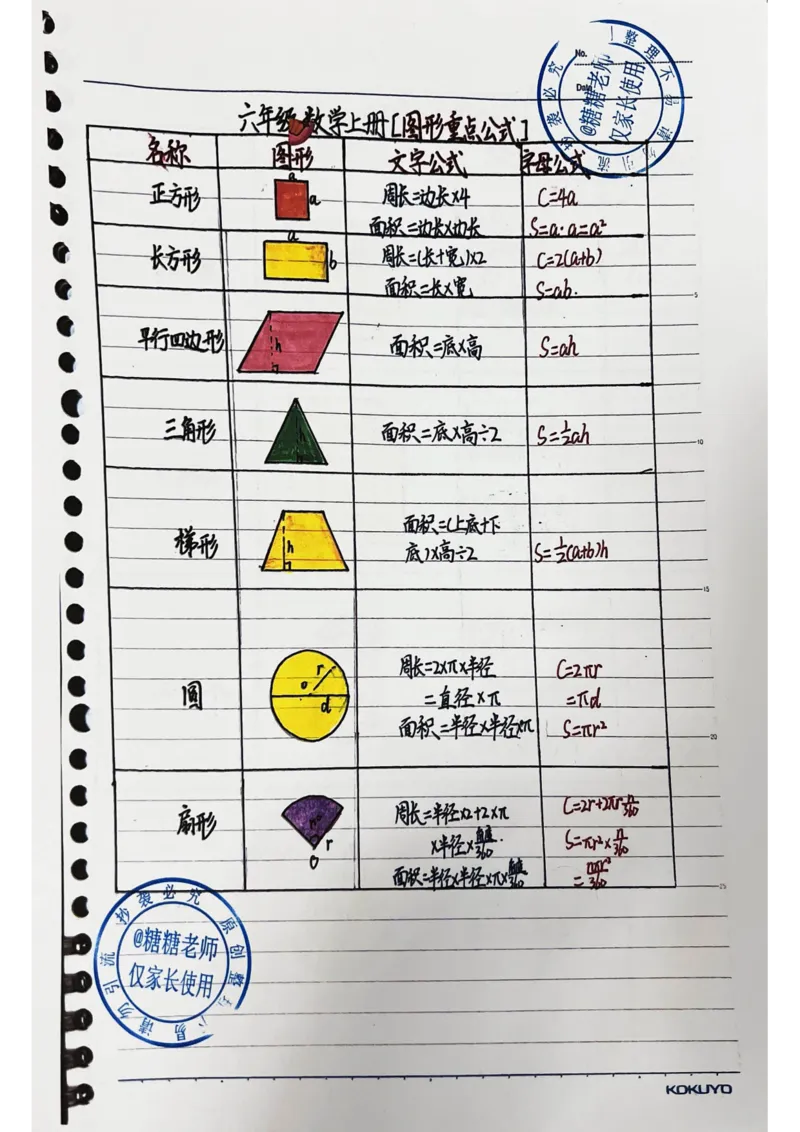 No.
Date
六年级数学上册[图形重点公式]
名称 图形 文字公式 字母公式
正方形 a a 周长=边长×4 C=4a
面积=边长×边长 S=a·a=a²
长方形 a b 周长=(长+宽)×2 C=2(a+b)
面积=长×宽 S=ab.
5
平行四边形 h 面积=底×高 S=ah
三角形 h 面积=底×高÷2 S=½ah
10
梯形 h 面积=(上底+下
底)×高÷2 S=½(a+b)h
15
圆 r o d 周长=2×π×半径 C=2πr
=直径×π =πd
面积=半径×半径×π S=πr²
20
扇形 n° r O 周长=半径×2+2×π C=2r+2πr n/360
×半径× /360 S=πr²×n/360
面积=半径×半径×π× /360 = nπr²/360
25
@糖糖老师
仅家长使用
抄袭必究 原创整 易 请勿引流
@糖糖老师
仅家长使用
抄袭必究 整理不易 请勿引流
KOKUYO